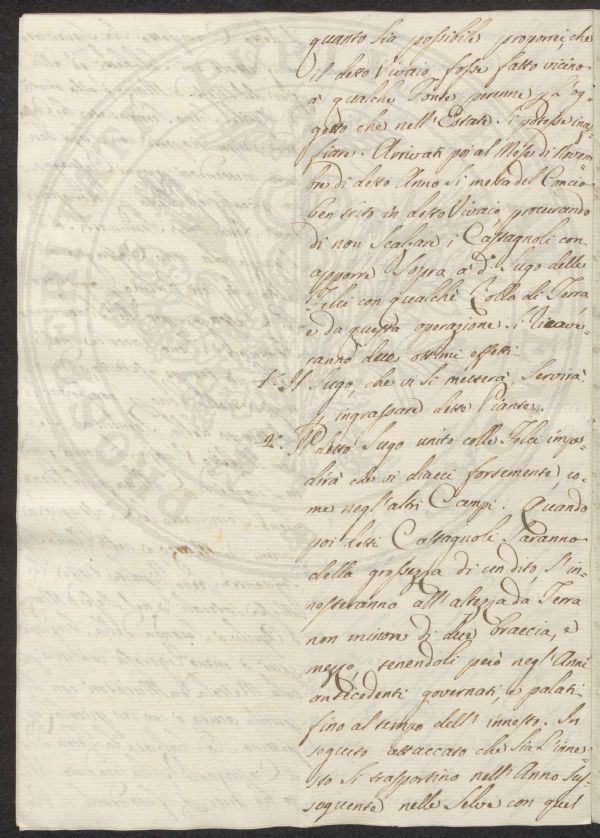 quanto sia possibile proporre, che
il detto Vivajo fosse fatto vicino
a qualche Fonte perenne p. l'og=
getto che nell'Estate si potesse inaf=
fiare. Arrivati poi al Mese di Novem=
bre di detto Anno si metta del Concio
ben trito in detto Vivajo, procurando
di non Scalzare i Castagnoli con
apporre Sopra a d.o Sugo delle
Felci con qualche Zolla di Terra
e da questa operazione Si ricave=
ranno due ottimi effetti.
1.o Il Sugo, che vi si metterà, servirà
p. ingrassare dette Piante.
2.o Il detto Sugo unito colle Felci impe=
dirà che vi diacci fortemente co=
me negl'altri Campi. Quando
poi detti Castagnoli Saranno
della grossezza di un dito, S'in=
nesteranno all'altezza da Terra
non minore di due braccia, e
mezzo, tenendoli però negl'Anni
antecedenti governati, e palati
fino al tempo dell'innesto. In
seguito attaccato che sia L'inne=
sto Si trasportino nell'Anno Sus=
seguente nelle Selve con quel